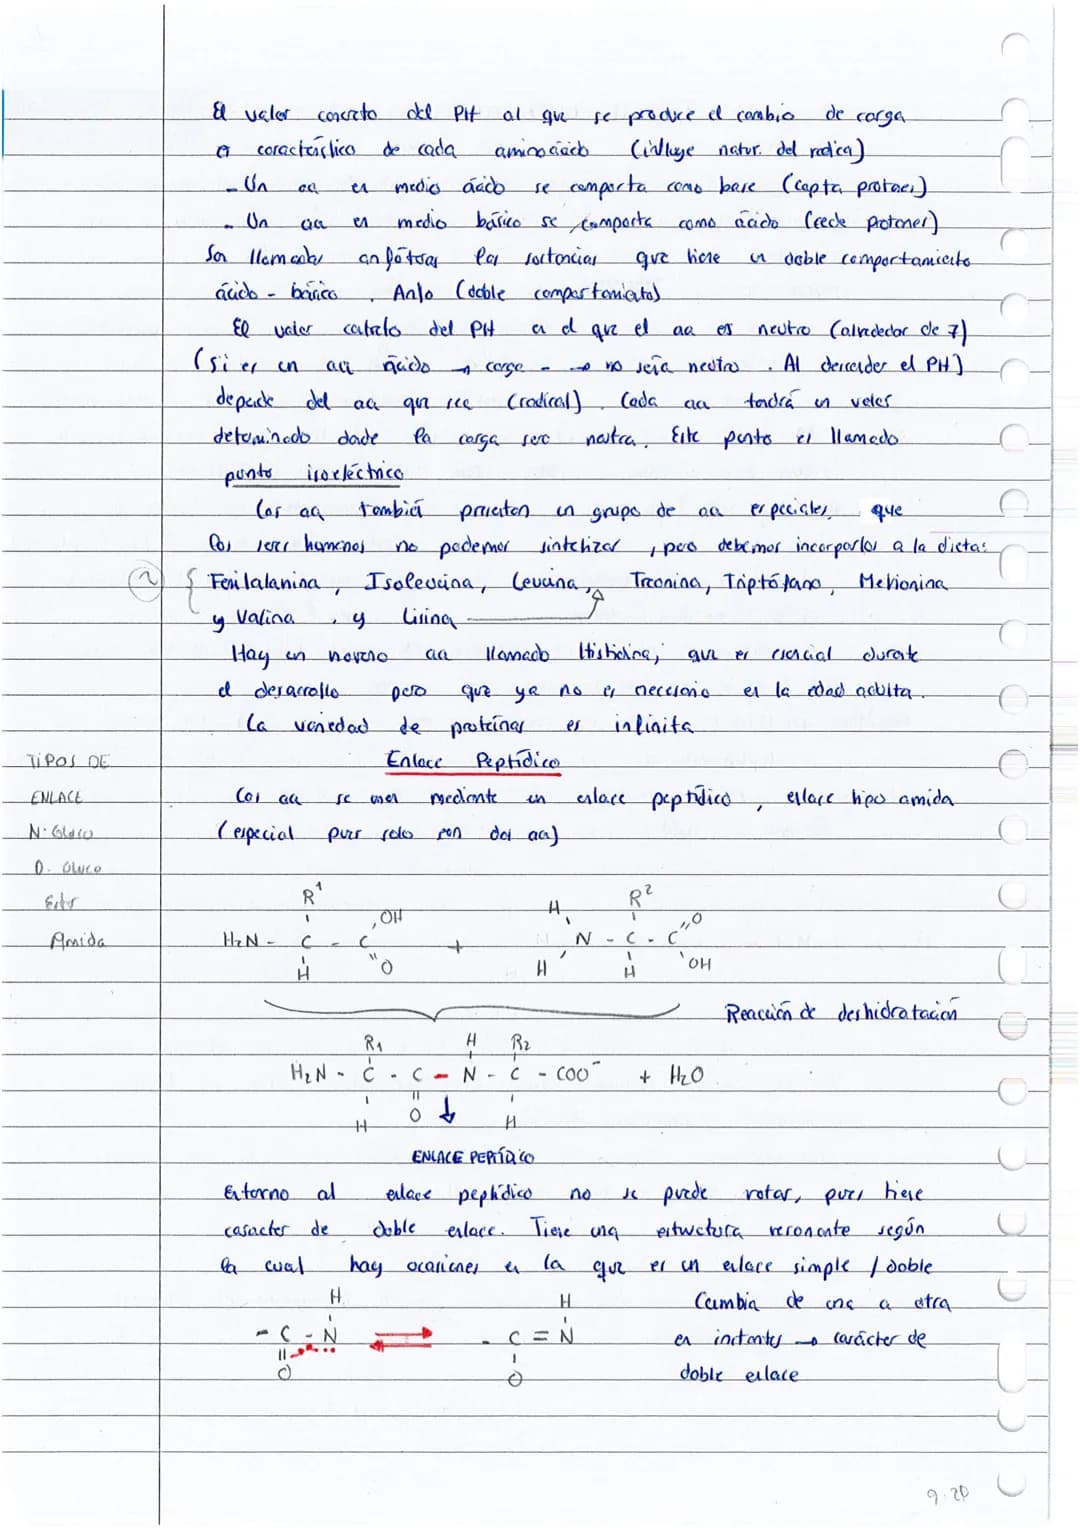 El valor concreto del PH al que se produce el cambio de carga
es característico de cada aminoácido (influye natur. del radical)
- Un aa en medio ácido se comporta como base (capta protones)
- Un aa en medio básico se comporta como ácido (cede protones)
Son llamadas anfóteras las sustancias que tiene un doble comportamiento
ácido - básico. Anfo (doble comportamiento)
El valor concreto del PH en el que el aa es neutro (alrededor de 7)
(si es un aa ácido → carga - → no sería neutro. Al descender el PH)
depende del aa que sea (radical). Cada aa tendrá un valor
determinado donde la carga será neutra. Este punto es llamado
punto isoeléctrico
Los aa también presentan un grupo de aa especiales, que
los seres humanos no podemos sintetizar, pero debemos incorporarlos a la dieta:
Fenilalanina, Isoleucina, Leucina, Treonina, Triptófano, Metionina
y Valina, y Lisina
Hay un noveno aa llamado Histidina, que es esencial durante
el desarrollo pero que ya no es necesario en la edad adulta.
La variedad de proteínas es infinita
TIPOS DE
ENLACE
N-Gluco
O-Gluco
Ester
Amida
Enlace Peptídico
Los aa se unen mediante un enlace peptídico, enlace tipo amida
(especial pues solo son dos aa)
R¹ R²
OH H O
H₂N - C - C + N - C - C
H O H H OH
Reacción de deshidratación
R₁ H R₂
H₂N - C - C - N - C - COO⁻ + H₂O
H O H
ENLACE PEPTÍDICO
Entorno al enlace peptídico no se puede rotar, pues tiene
caracter de doble enlace. Tiene una estructura resonante según
la cual hay ocasiones en la que es un enlace simple / doble
H H Cambia de una a otra
- C - N - C = N en instantes → carácter de
O O doble enlace
9.20